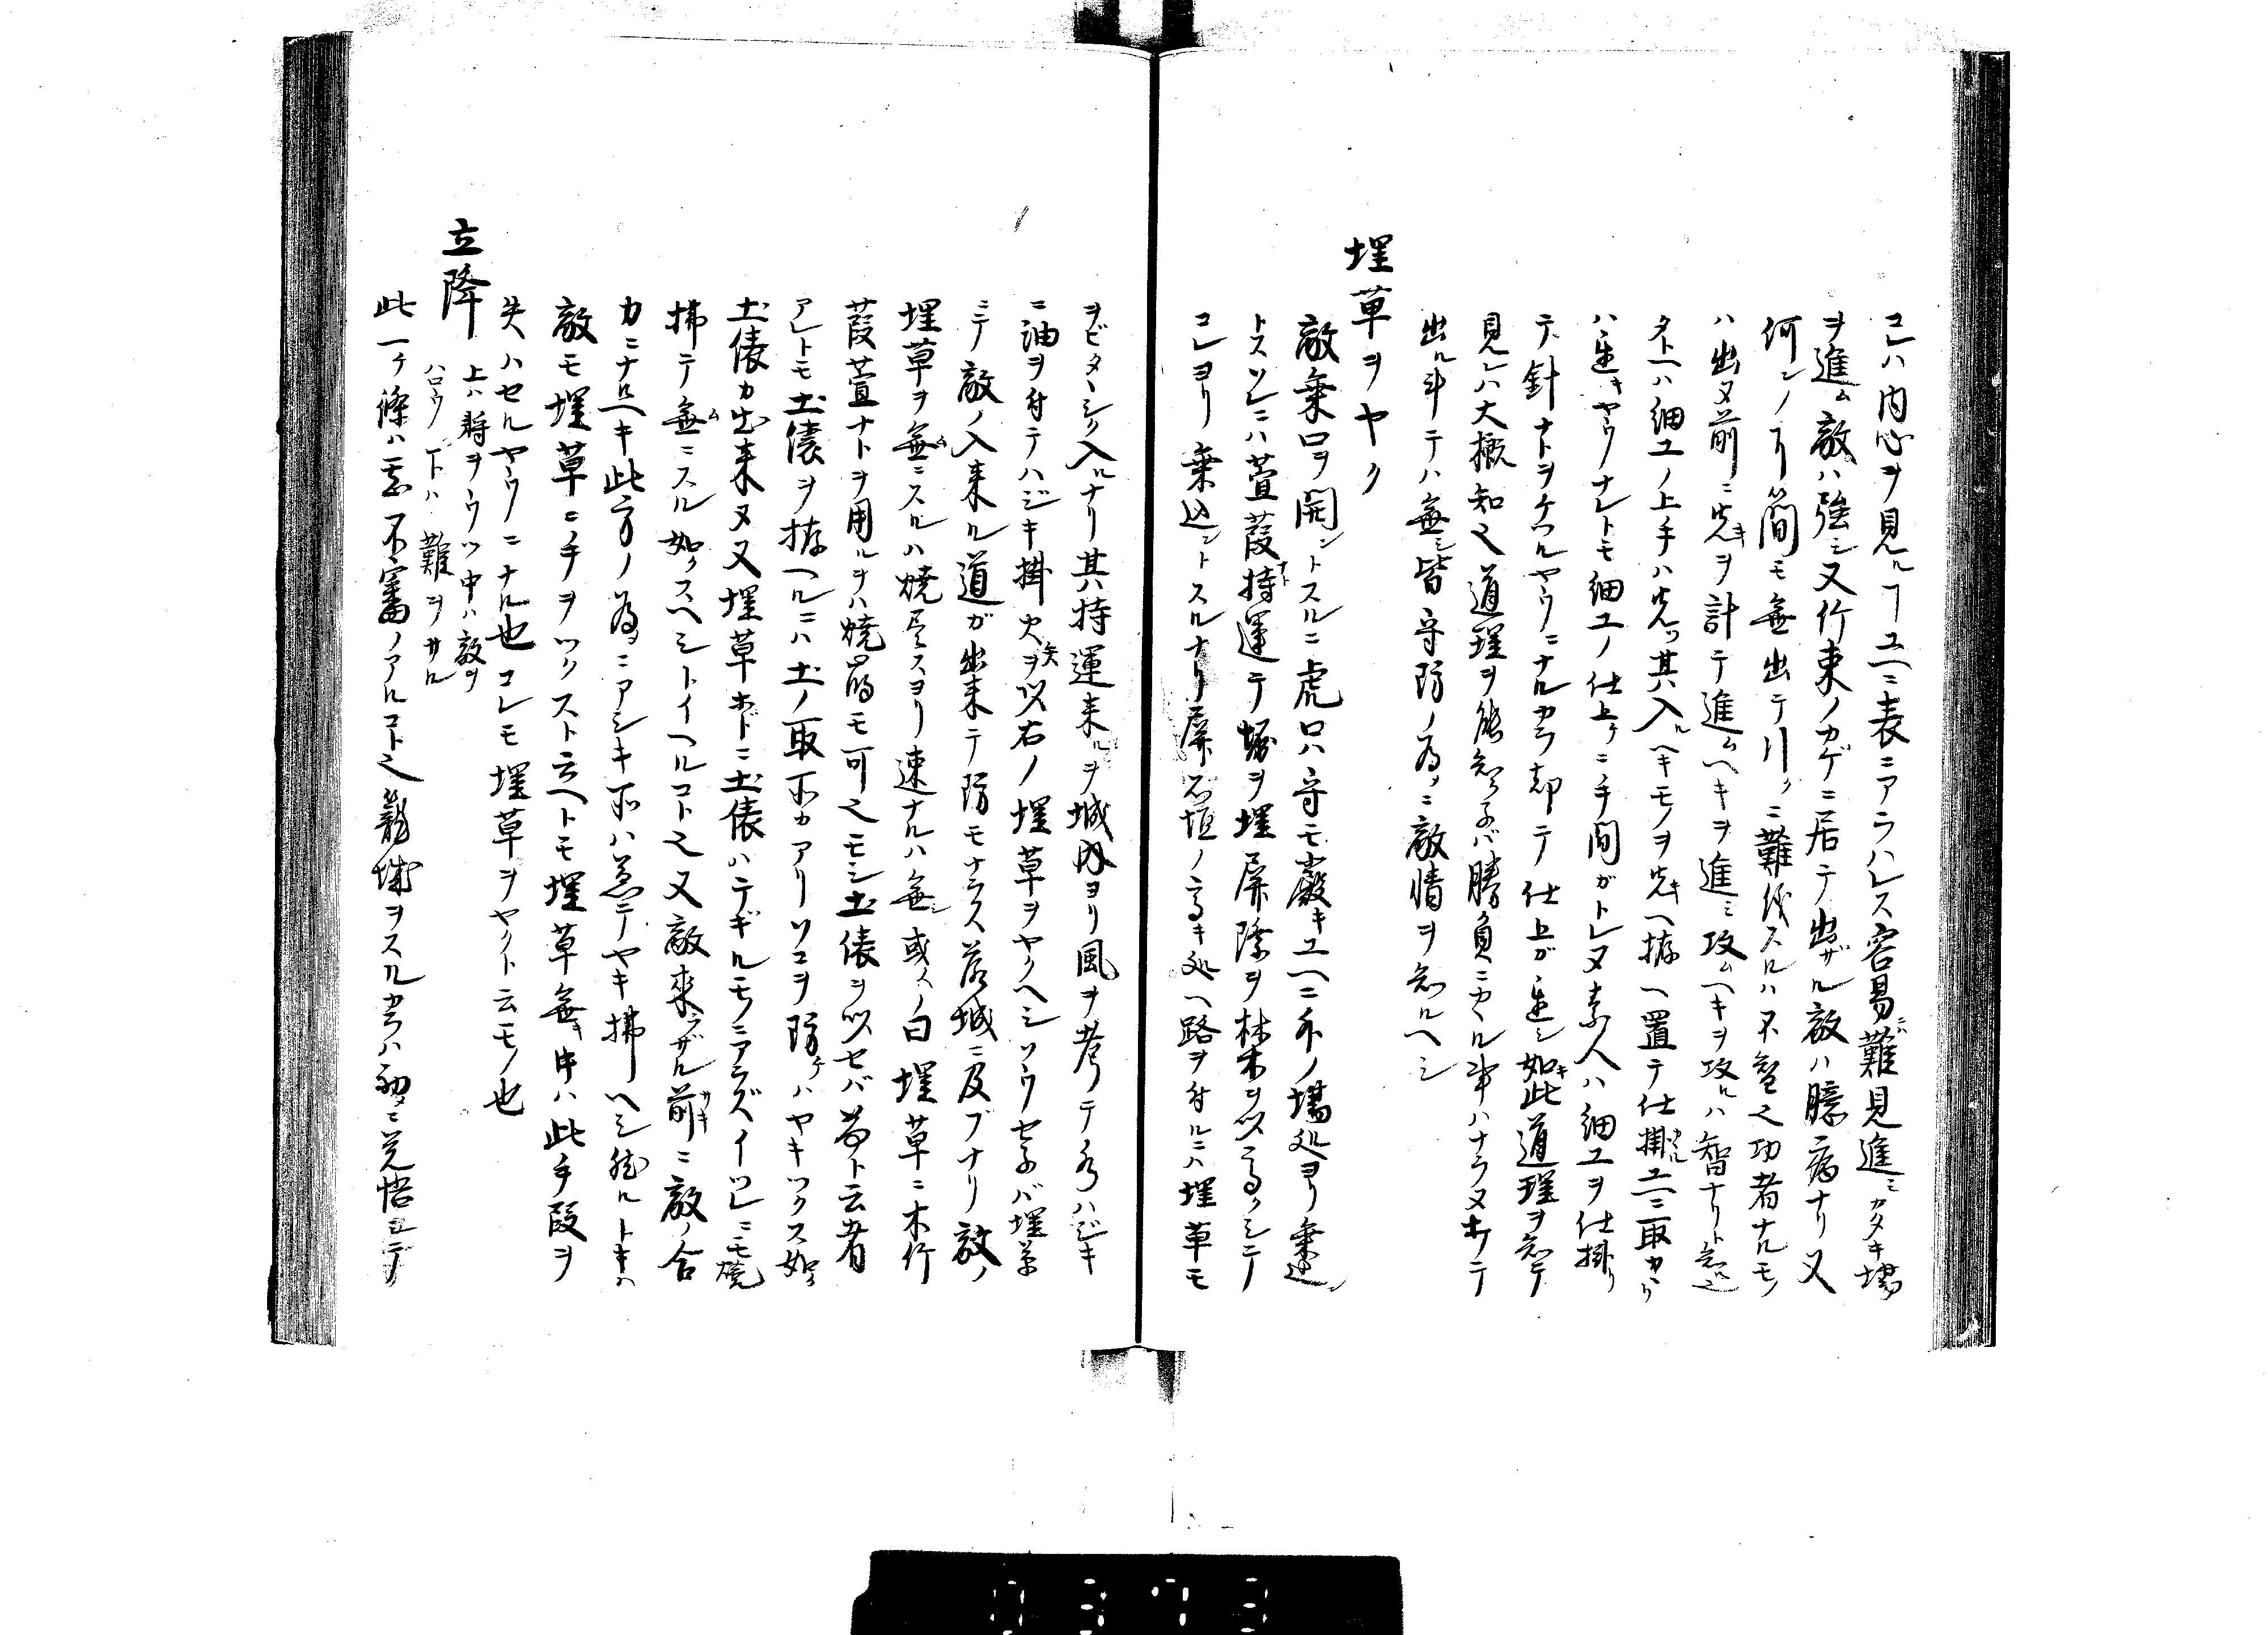 コレハ内心ヲ見ルヿユヘニ表ニアラハレス容易ニハ難見進ミカタキ場
ヲ進ム敵ハ強シ又竹束ノカゲニ居テ出ザル敵ハ臆病ナリ又
何ンノ用簡モ無出テ引クニ難儀スルハ不智也功者ナルモノ
ハ出ヌ前ニ先キヲ計テ進ムヘキヲ進ミ攻ムヘキヲ攻ルハ智ナリト知
タトヘハ細工ノ上手ハ先ツ其入ルヘキモノヲ先キヘ拵ヘ置テ仕掛ルユヘニ取カヽリ
ハ遅キヤウナレトモ細工ノ仕上ケニ手間ガトレヌ素人ハ細工ヲ仕掛リ
テ針ナトヲケツルヤウニナルカラ却テ仕上ガ遅シ如此キ道理ヲ知テ
見レハ大概知也道理ヲ能知ラ子バ勝負ニカヽル事ハナラヌ
出ル斗テハ無シ皆守防ノ為メニ敵情ヲ知ルヘシ
埋草ヲヤク
敵乗口ヲ開ントスルニ虎口ハ守モ嚴キユヘニ外ノ場処ヨリ乗込ン
トスソレニハ萱葭ナト持運テ堀ヲ埋屏際ヲ材木ヲ以高クシテ
コレヨリ乗込ントスルナリ屏石垣ノ高キ処ヘ路ヲ付ルニハ埋草モ
ヲビタヽシク入ルナリ其持運来ルヲ城内ヨリ風ヲ考テハジキ
ニ油ヲ付テハジキ掛火矢ヲ以右ノ埋草ヲヤクヘシソウセ子バ埋草
ニテ敵ノ入来ル道ガ出来テ防モナラス落城ニ及ブナリ敵ノ
埋草ヲ無ニスルハ焼尽スヨリ速ナルハ無シ或人ノ曰埋草ニ木竹
葭萱ナトヲ用ルヲハ焼モ可也モシ土俵ヲ以セバ ト云者
アレトモ土俵ヲ拵ヘルニハ土ノ取所カアリソコヲ防ケハヤキツクス如ク
土俵カ出来ヌ又埋草ホドニ土俵ハテギルモノニアラズイツレニモ焼
拂テ無ムニスル如クスヘシトイヘルコト也又敵来ラザル前サキニ敵ノ合
力ニナルヘキ此方ノ為ニアシキ所ハ悉テヤキ拂ヘシ然ルトキハ
敵モ埋草ニ手ヲツクスト云ヘトモ埋草無キ時ハ此手段ヲ
失ハセルヤウニナル也コレモ埋草ヲヤクト云モノ也
立降
上ハ將ヲウツ中ハ敵ヲ
ハロウ下ハ難ヲサル
此一ケ條ハ不審ノアルコト也籠城ヲスルカラハ初ニ覚悟シテ